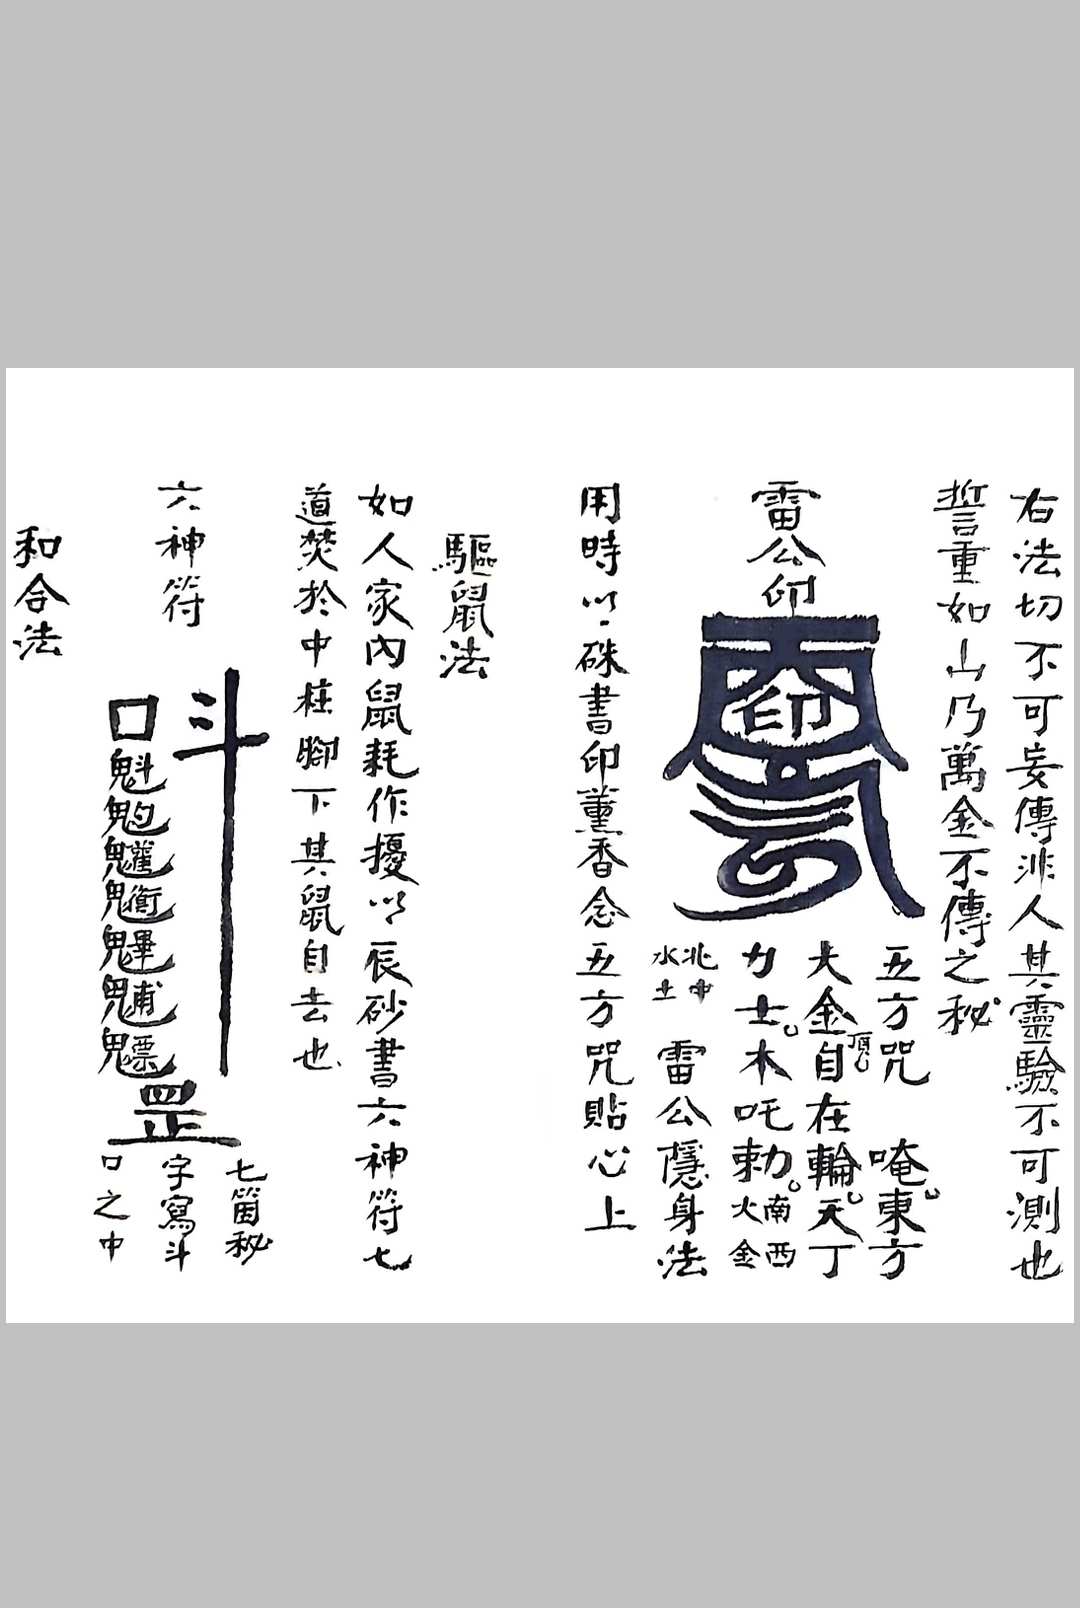 右法切不可妄傳非人其靈驗不可測也
誓重如山乃萬金不傳之秘
雷公印
印
五方咒 唵東方
大金頂自在輪天丁
力士木吒勅火金南西
水土北中 雷公隱身法
用時以硃書印薰香念五方咒貼心上
驅鼠法
如人家內鼠耗作擾以辰砂書六神符七
道焚於中柱腳下其鼠自去也
六神符
斗
口
魁
魓
䰢
魒
罡
七箇秘
字寫斗
口之中
和合法